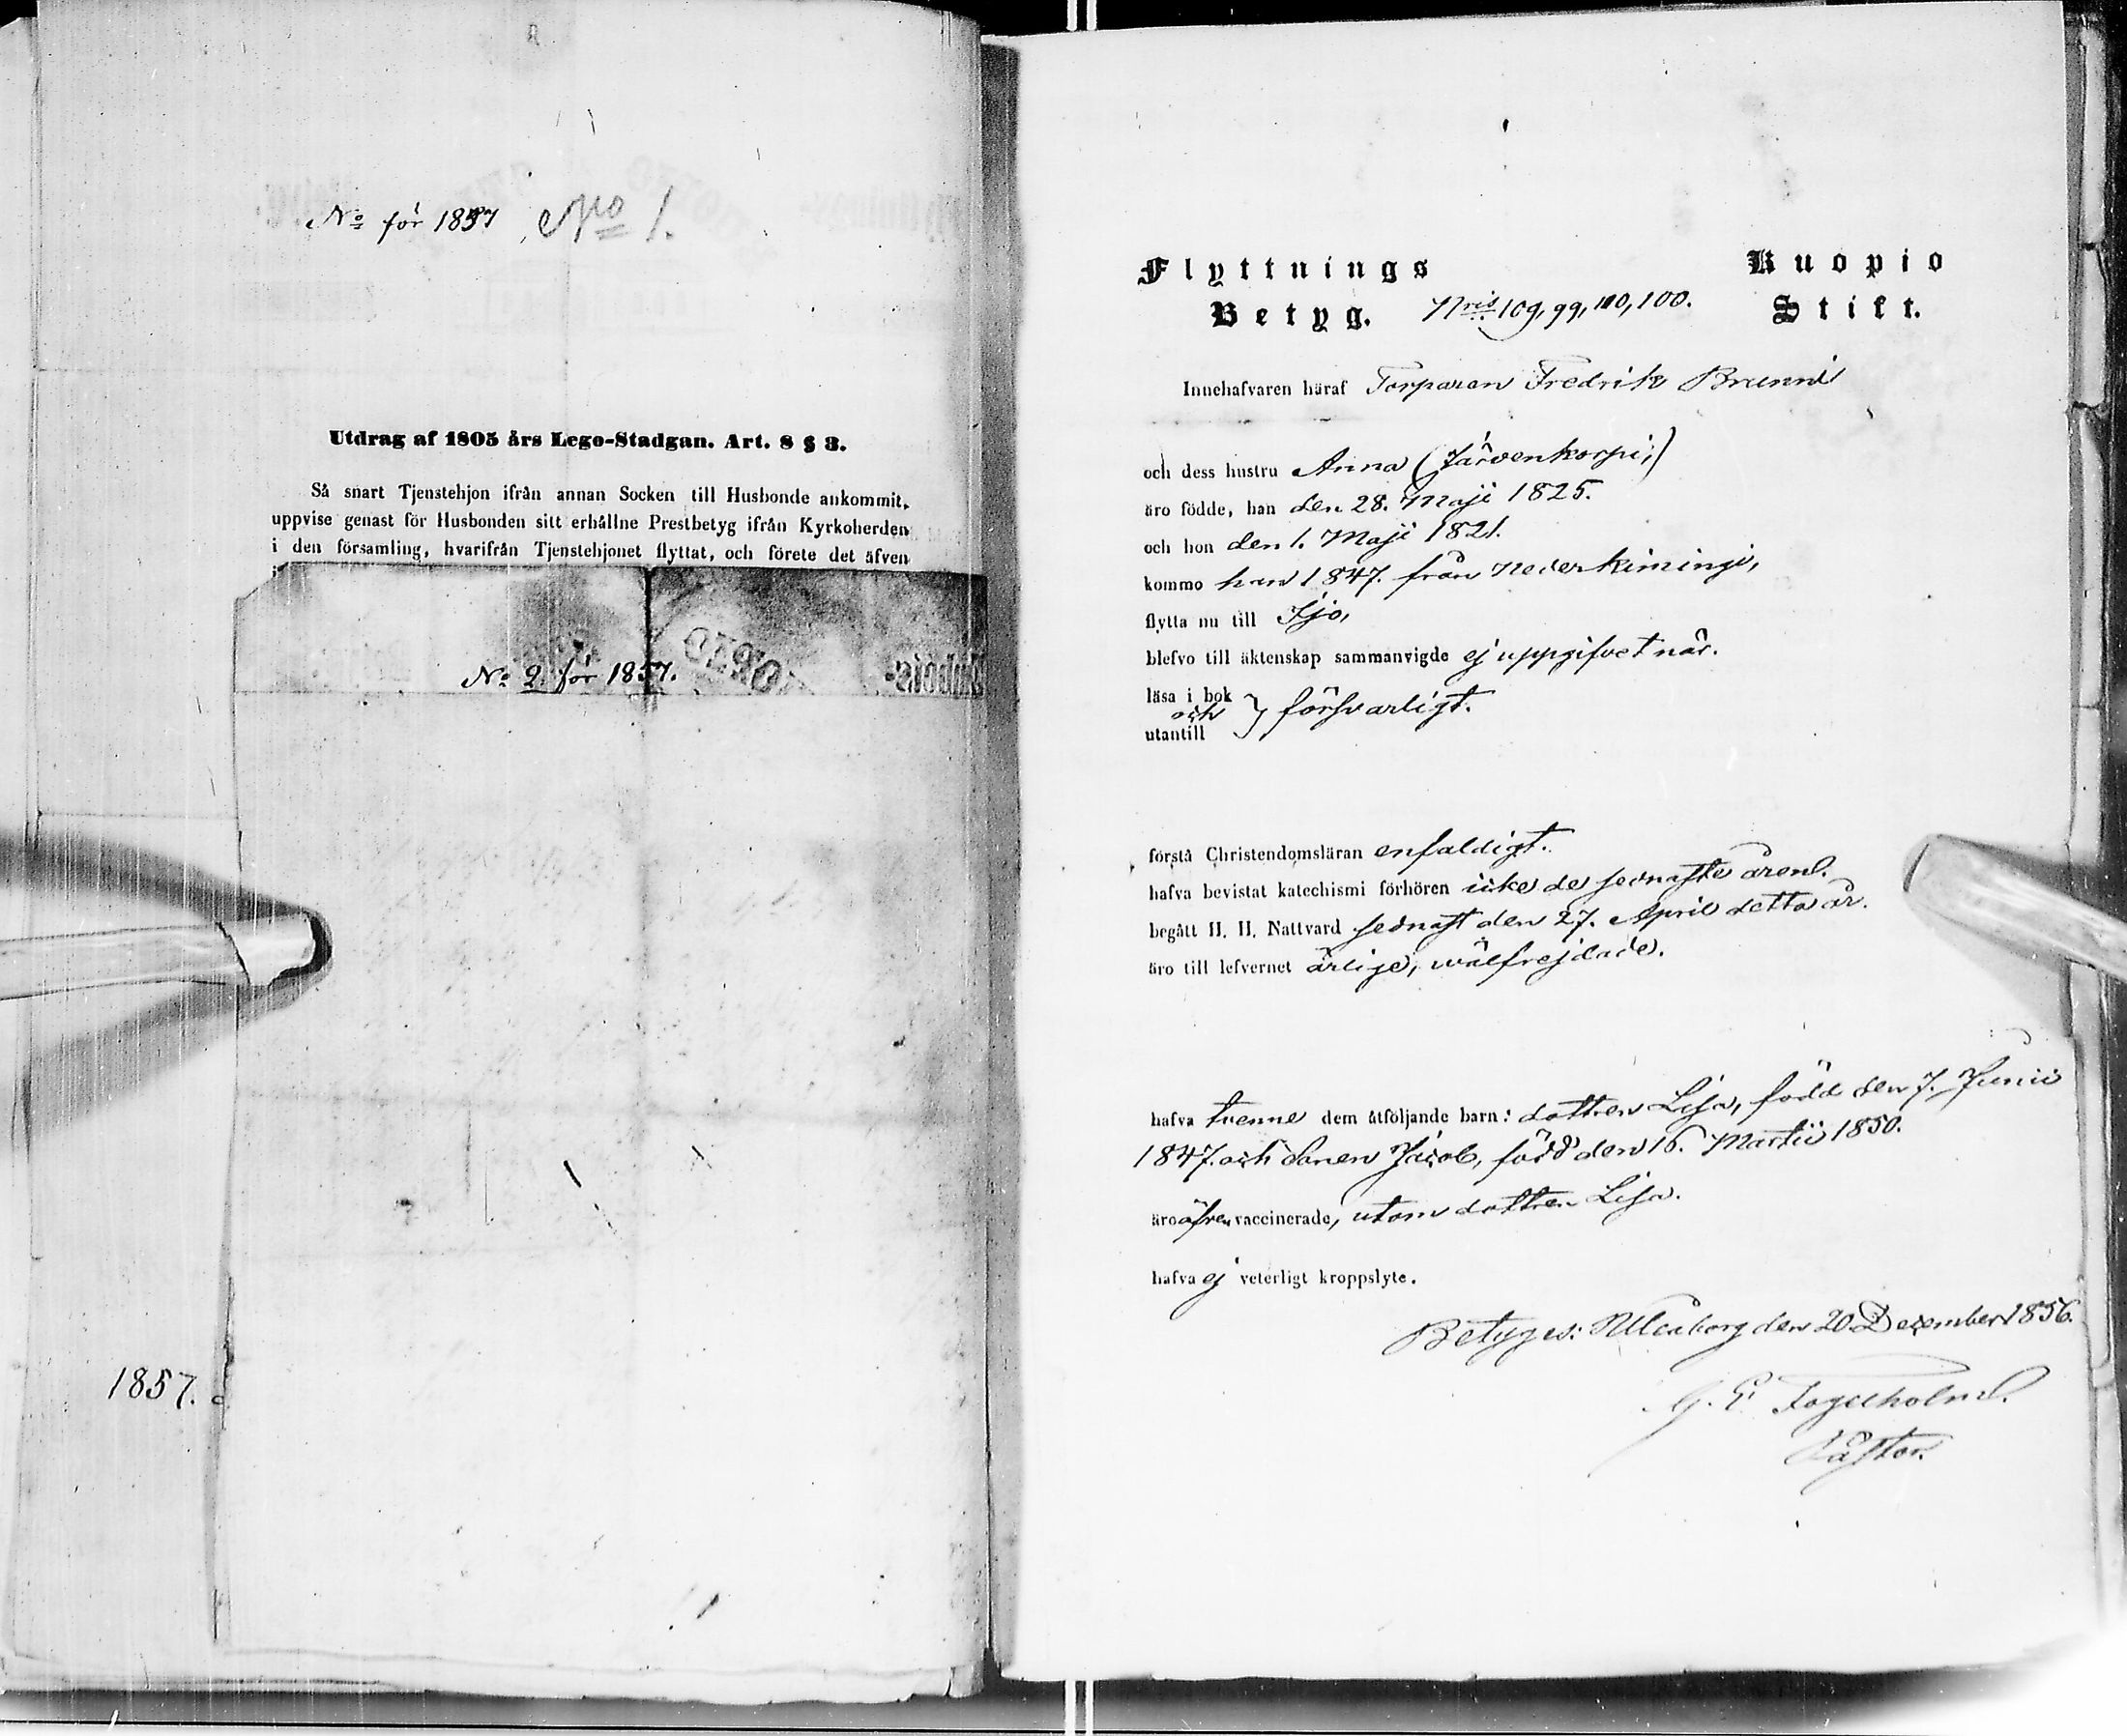 No för 1857 No 1.
Utdrag af 1805 års Lego-Stadgan. Art. 8 § 3.
Så snart Tjenstehjon ifrån annan Socken till Husbonde ankommit,
uppvise genast för Husbonden sitt erhållne Prestbetyg ifrån Kyrkoherden
i den församling, hvarifrån Tjenstehjonet flyttat, och förete det äfven
No 2 för 1857.
1857.
Flyttnings
Betyg.
Nris 109, 99, 110, 100.
Kuopio
Stift.
Innehafvaren häraf Torparen Fredrik Brunni
och dess hustru Anna (Järvenkorpi,)
äro födde, han den 28. Maji 1825.
och hon den 1. Maji 1821.
kommo han 1847. från Nederkimingi,
flytta nu till Ijo,
blefvo till äktenskap sammanvigde ej uppgifvet når.
läsa i bok
och } försvarligt.
utantill
förstå Christendomsläran enfaldigt.
hafva bevistat katechismi förhören icke de sednaste åren.
begått H. H. Nattvard sednast den 27. April detta år.
äro till lefvernet ärlige, wälfrejdade.
hafva tvenne dem åtföljande barn: dottren Lisa, född den 7. Junii
1847. och Sonen Jacob, född den 16. Martii 1850.
äro äfven vaccinerade, utom dottren Lisa.
hafva ej veterligt kroppslyte.
Betyges: Uleåborg den 20 December 1856.
G. E. Fogelholm.
Pastor.